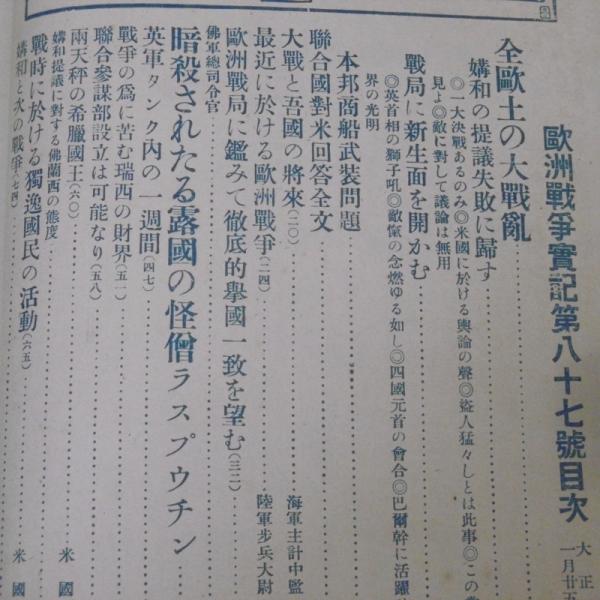 歐洲戰爭實記第八十七號目次
大正
一月廿五
全歐土の大戰亂
媾和の提議失敗に歸す
◎一大決戰あるのみ◎米國に於ける輿論の聲◎盜人猛々しとは此事◎この
見よ◎敵に對して議論は無用
戰局に新生面を開かむ
◎英首相の獅子吼◎敵愾の念燃ゆる如し◎四國元首の會合◎巴爾幹に活躍
界の光明
本邦商船武裝問題
聯合國對米回答全文
大戰と吾國の將來(二〇) 海軍主計中監
最近に於ける歐洲戰爭(二四) 陸軍步兵大尉
歐洲戰局に鑑みて徹底的擧國一致を望む(三二)
佛軍總司令官
暗殺されたる露國の怪僧ラスプウチン
英軍タンク內の一週間(四七)
戰爭の爲に苦む瑞西の財界(五一)
聯合參謀部設立は可能なり(五八)
兩天秤の希臘國王(六〇)
媾和提議に對する佛蘭西の態度 米國
戰時に於ける獨逸國民の活動(六五)
媾和と次の戰爭(七四) 米國